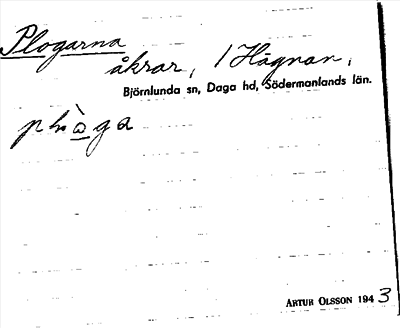 Plogarna
åkrar, i Hägnan,
Björnlunda sn, Daga hd, Södermanlands län.
ARTUR OLSSON 1943